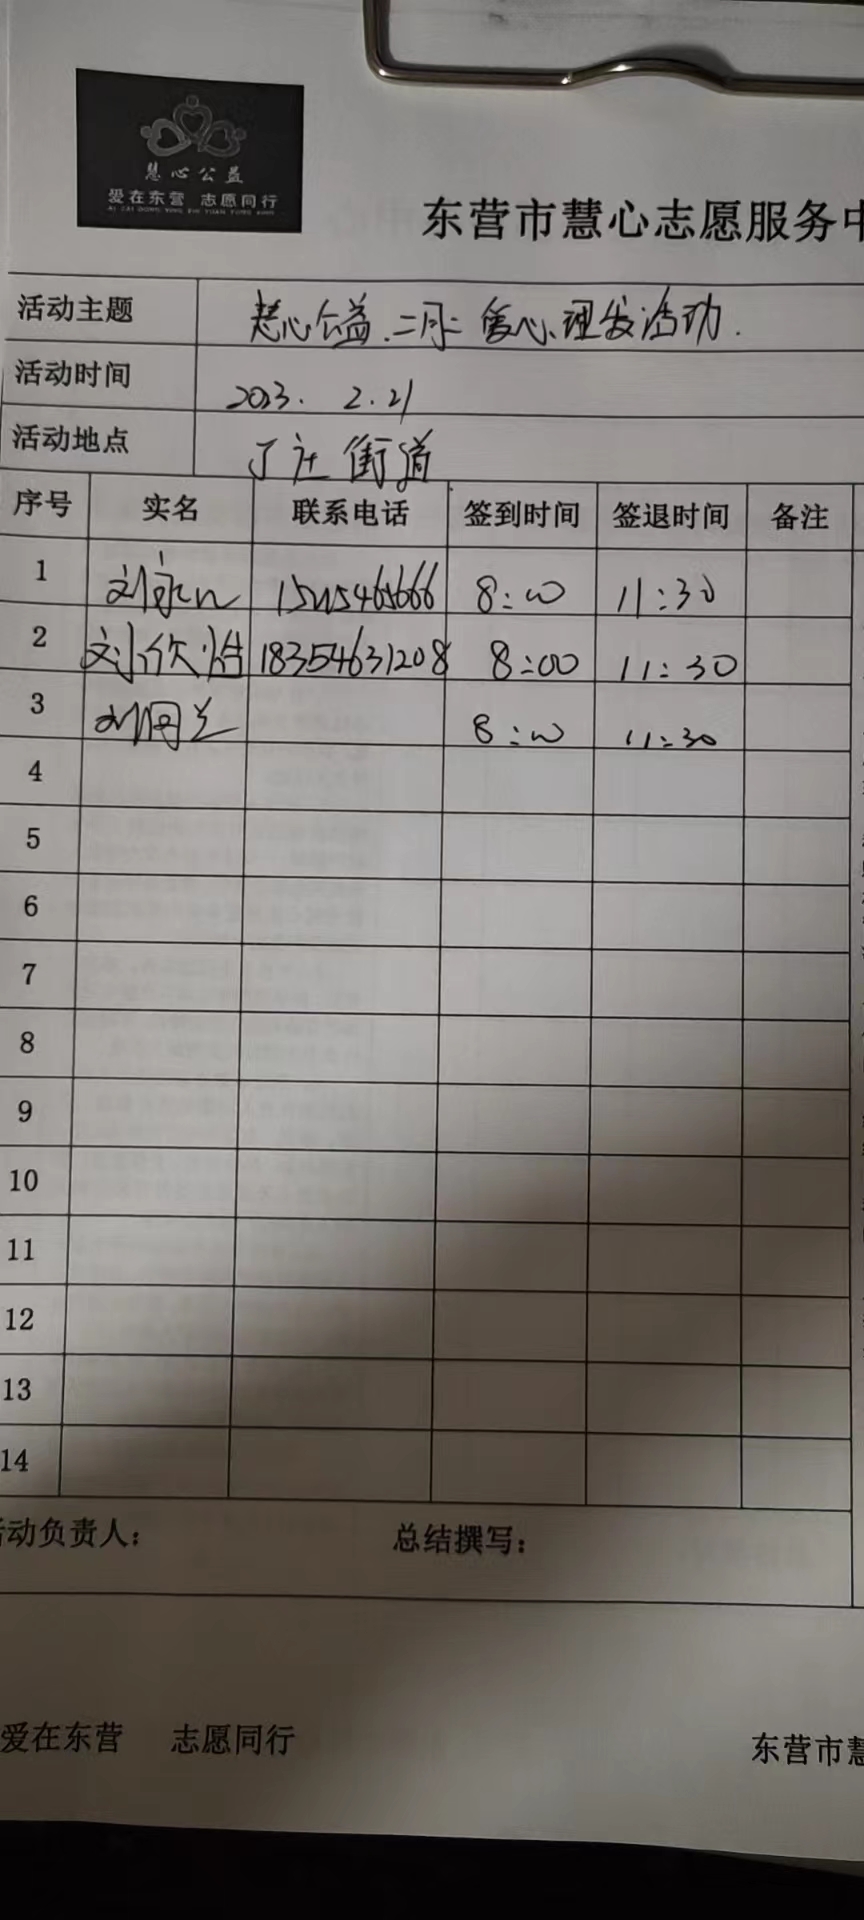 慧心公益
爱在东营 志愿同行
AI ZAI DONG YING ZHI YUAN TONG XING
东营市慧心志愿服务中
活动主题 慧心公益.二月二爱心理发活动.
活动时间 2023. 2.21
活动地点 丁庄街道
序号 实名 联系电话 签到时间 签退时间 备注
1 刘永 8:00 11:30
2 刘欣怡 18354631208 8:00 11:30
3 刘同兰 8:00 11:30
4
5
6
7
8
9
10
11
12
13
14
活动负责人: 总结撰写:
爱在东营 志愿同行 东营市慧